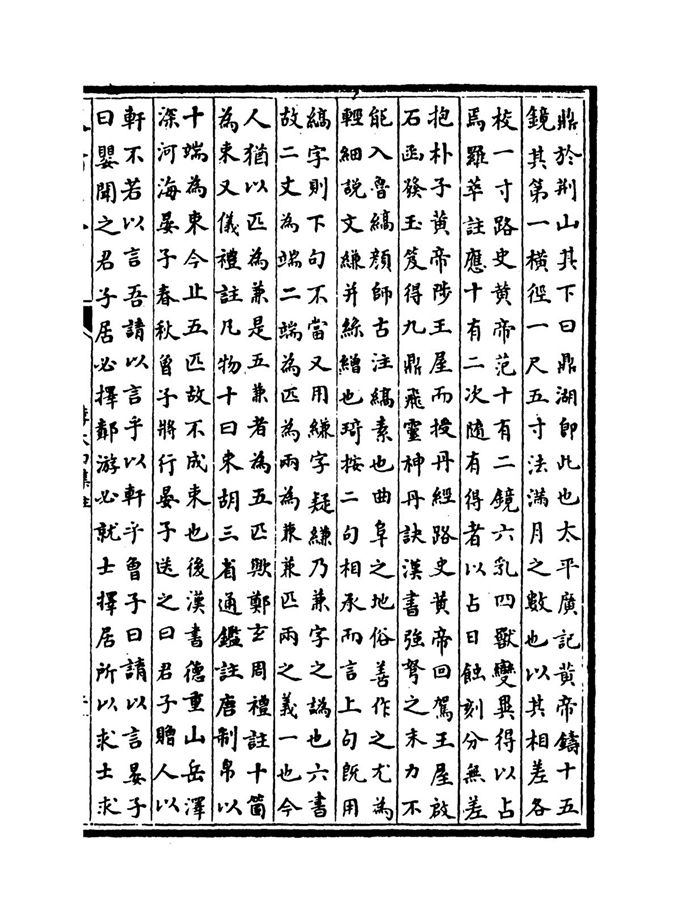 鼎於荆山其下曰鼎湖即此也太平廣記黄帝鑄十五
鏡其第一橫徑一尺五寸法滿月之數也以其相差各
校一寸路史黄帝范十有二鏡六乳四獸變異得以占
焉羅苹註應十有二次隨有得者以占日蝕刻分無差
抱朴子黄帝陟王屋而授丹經路史黄帝回駕王屋啟
石函發玉笈得九鼎飛靈神丹訣漢書強弩之末力不
能入魯縞顔師古注縞素也曲阜之地俗善作之尤為
輕細説文縑并絲繒也琦按二句相承而言上句既用
縞字則下句不當又用縑字疑縑乃兼字之譌也六書
故二丈為端二端為匹為兩為兼兼匹兩之義一也今
人猶以匹為兼是五兼者為五匹歟鄭𤣥周禮註十箇
為束又儀禮註凡物十曰束胡三省通鑑註唐制帛以
十端為束今止五匹故不成束也後漢書德重山岳澤
深河海晏子春秋曾子將行晏子送之曰君子贈人以
軒不若以言吾請以言乎以軒乎曾子曰請以言晏子
曰嬰聞之君子居必擇鄰游必就士擇居所以求士求